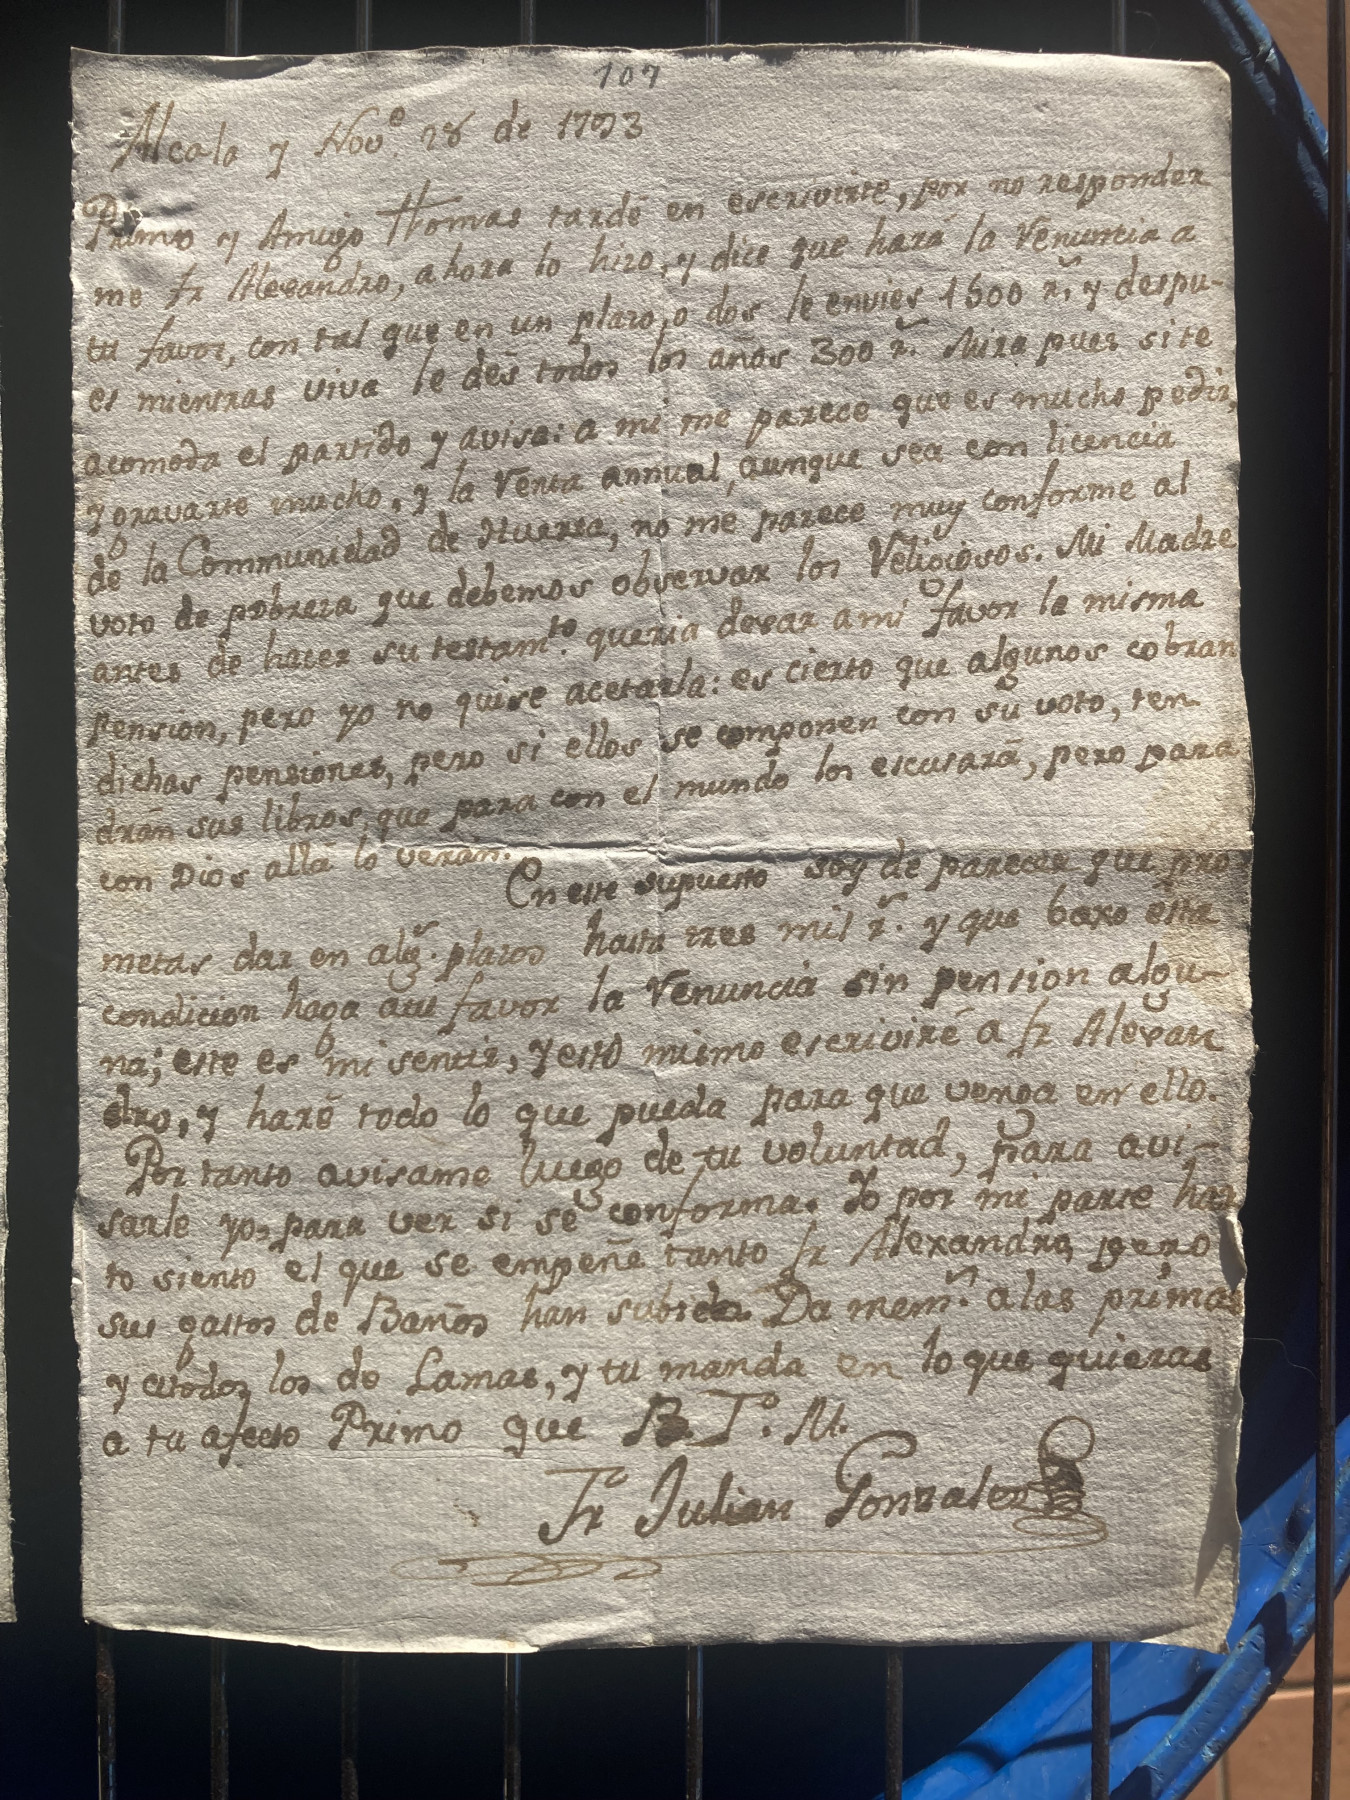 107
Alcala y Nov.e 28 de 1793
Primo y Amigo Thomas tardé en escrivirte, por no responder
me fr Alexandro, ahora lo hizo, y dice que hará la Renuncia a
tu favor, con tal que en un plazo, o dos le envies 1600 r.s y despu-
es mientras viva le des todos los años 300 r.s Mira pues si te
acomoda el partido y avisa: a mi me parece que es mucho pedir,
y gravarte mucho, y la Renta annual, aunque sea con licencia
de la Communidad de Huerta, no me parece muy conforme al
voto de pobreza que debemos observar los Religiosos. Mi Madre
antes de hacer su testam.to queria dexar a mi favor la misma
pension, pero yo no quise acetarla: es cierto que algunos cobran
dichas pensiones, pero si ellos se componen con su voto, ten
drán sus libros, que para con el mundo los escusará, pero para
con Dios allá lo verán.
En este supuesto soy de parecer que pro
metas dar en alg.s plazos hasta tres mil r.s y que baxo esta
condicion haga a tu favor la Renuncia sin pension algu-
na; este es mi sentir, y esto mismo escriviré a fr Alexan
dro, y haré todo lo que pueda para que venga en ello.
Por tanto avisame luego de tu voluntad, para avi-
sarle yo, para ver si se conforma. Yo por mi parte har
to siento el que se empeñe tanto fr Alexandro, pero
sus gastos de Baños han subido. Da mem.s a las primas
y a todos los de Lamas, y tu manda en lo que quieras
a tu afecto Primo que B. T. M.
Fr Julian Gonzalez